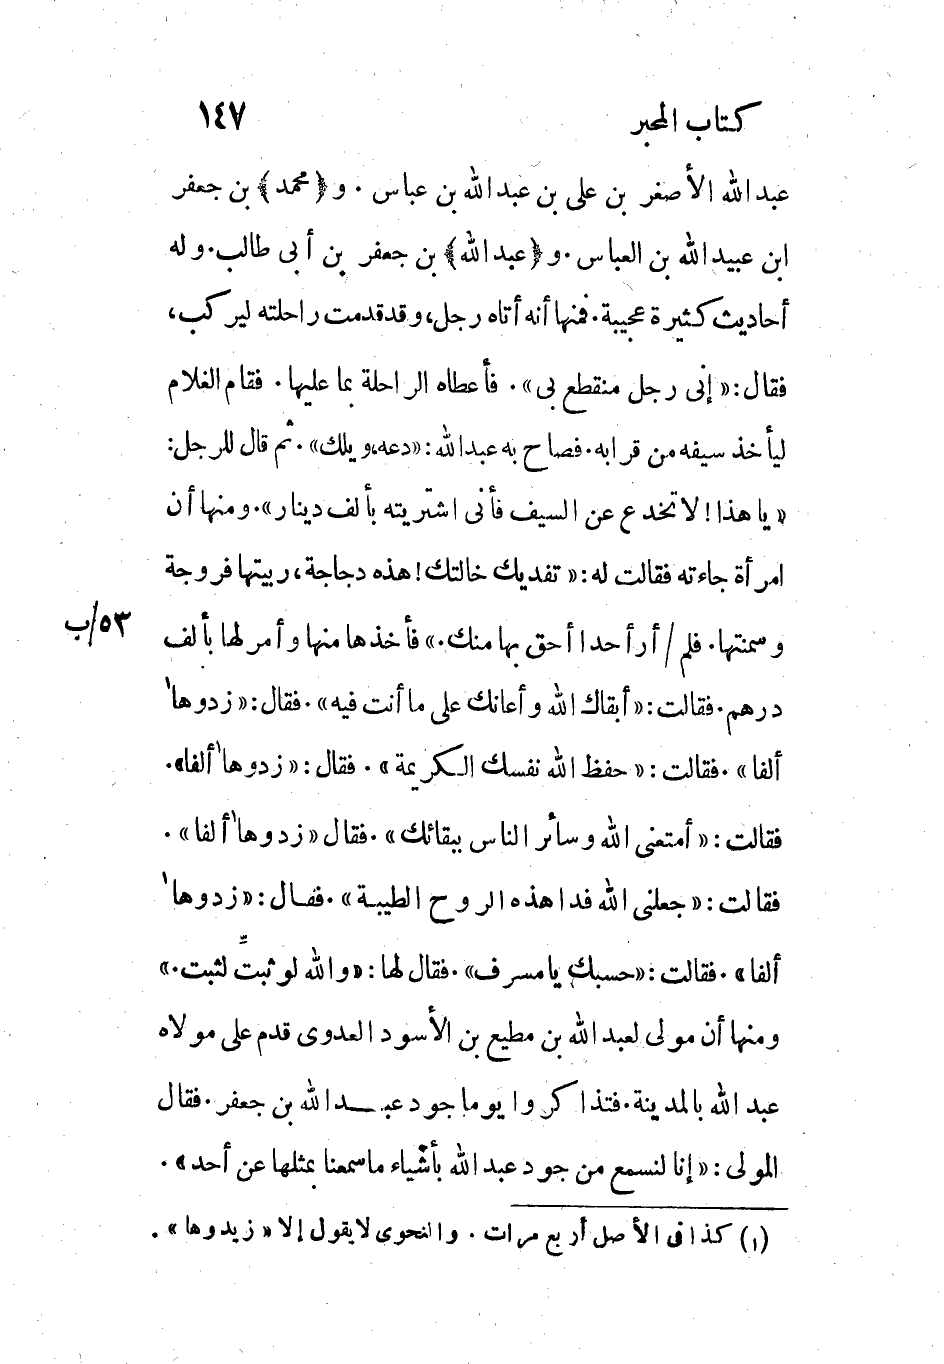 كتاب المحبر ١٤٧
عبد الله الأصغر بن على بن عبد الله بن عباس . و﴿محمد﴾ بن جعفر
ابن عبيد الله بن العباس . و﴿عبد الله﴾ بن جعفر بن أبى طالب . وله
أحاديث كثيرة عجيبة . فمنها أنه أتاه رجل، وقد قدمت راحلته ليركب،
فقال : « إنى رجل منقطع بى » . فأعطاه الراحلة بما عليها . فقام الغلام
ليأخذ سيفه من قرابه . فصاح به عبد الله : «دعه، ويلك» . ثم قال للرجل :
« يا هذا ! لا تخدع عن السيف فأنى اشتريته بألف دينار » . ومنها أن
امرأة جاءته فقالت له : « تفديك خالتك ! هذه دجاجة، ربيتها فروجة
وسمنتها . فلم / أر أحدا أحق بها منك . » فأخذها منها وأمر لها بألف
٥٣/ب
درهم . فقالت : « أبقاك الله وأعانك على ما أنت فيه » . فقال : « زدوها١
ألفا » . فقالت : « حفظ الله نفسك الكريمة » . فقال : « زدوها١ ألفا» .
فقالت : « أمتعنى الله وسائر الناس ببقائك » . فقال « زدوها١ ألفا » .
فقالت : « جعلنى الله فدا هذه الروح الطيبة » . فقال : « زدوها١
ألفا » . فقالت : «حسبك يا مسرف» . فقال لها : « والله لو ثبتِّ لثبت . »
ومنها أن مولى لعبد الله بن مطيع بن الأسود العدوى قدم على مولاه
عبد الله بالمدينة . فتذاكروا يوما جود عبد الله بن جعفر . فقال
المولى : « إنا لنسمع من جود عبد الله بأشياء ما سمعنا بمثلها عن أحد » .
(١) كذا فى الأصل أربع مرات . والنحوى لا يقول إلا « زيدوها » .